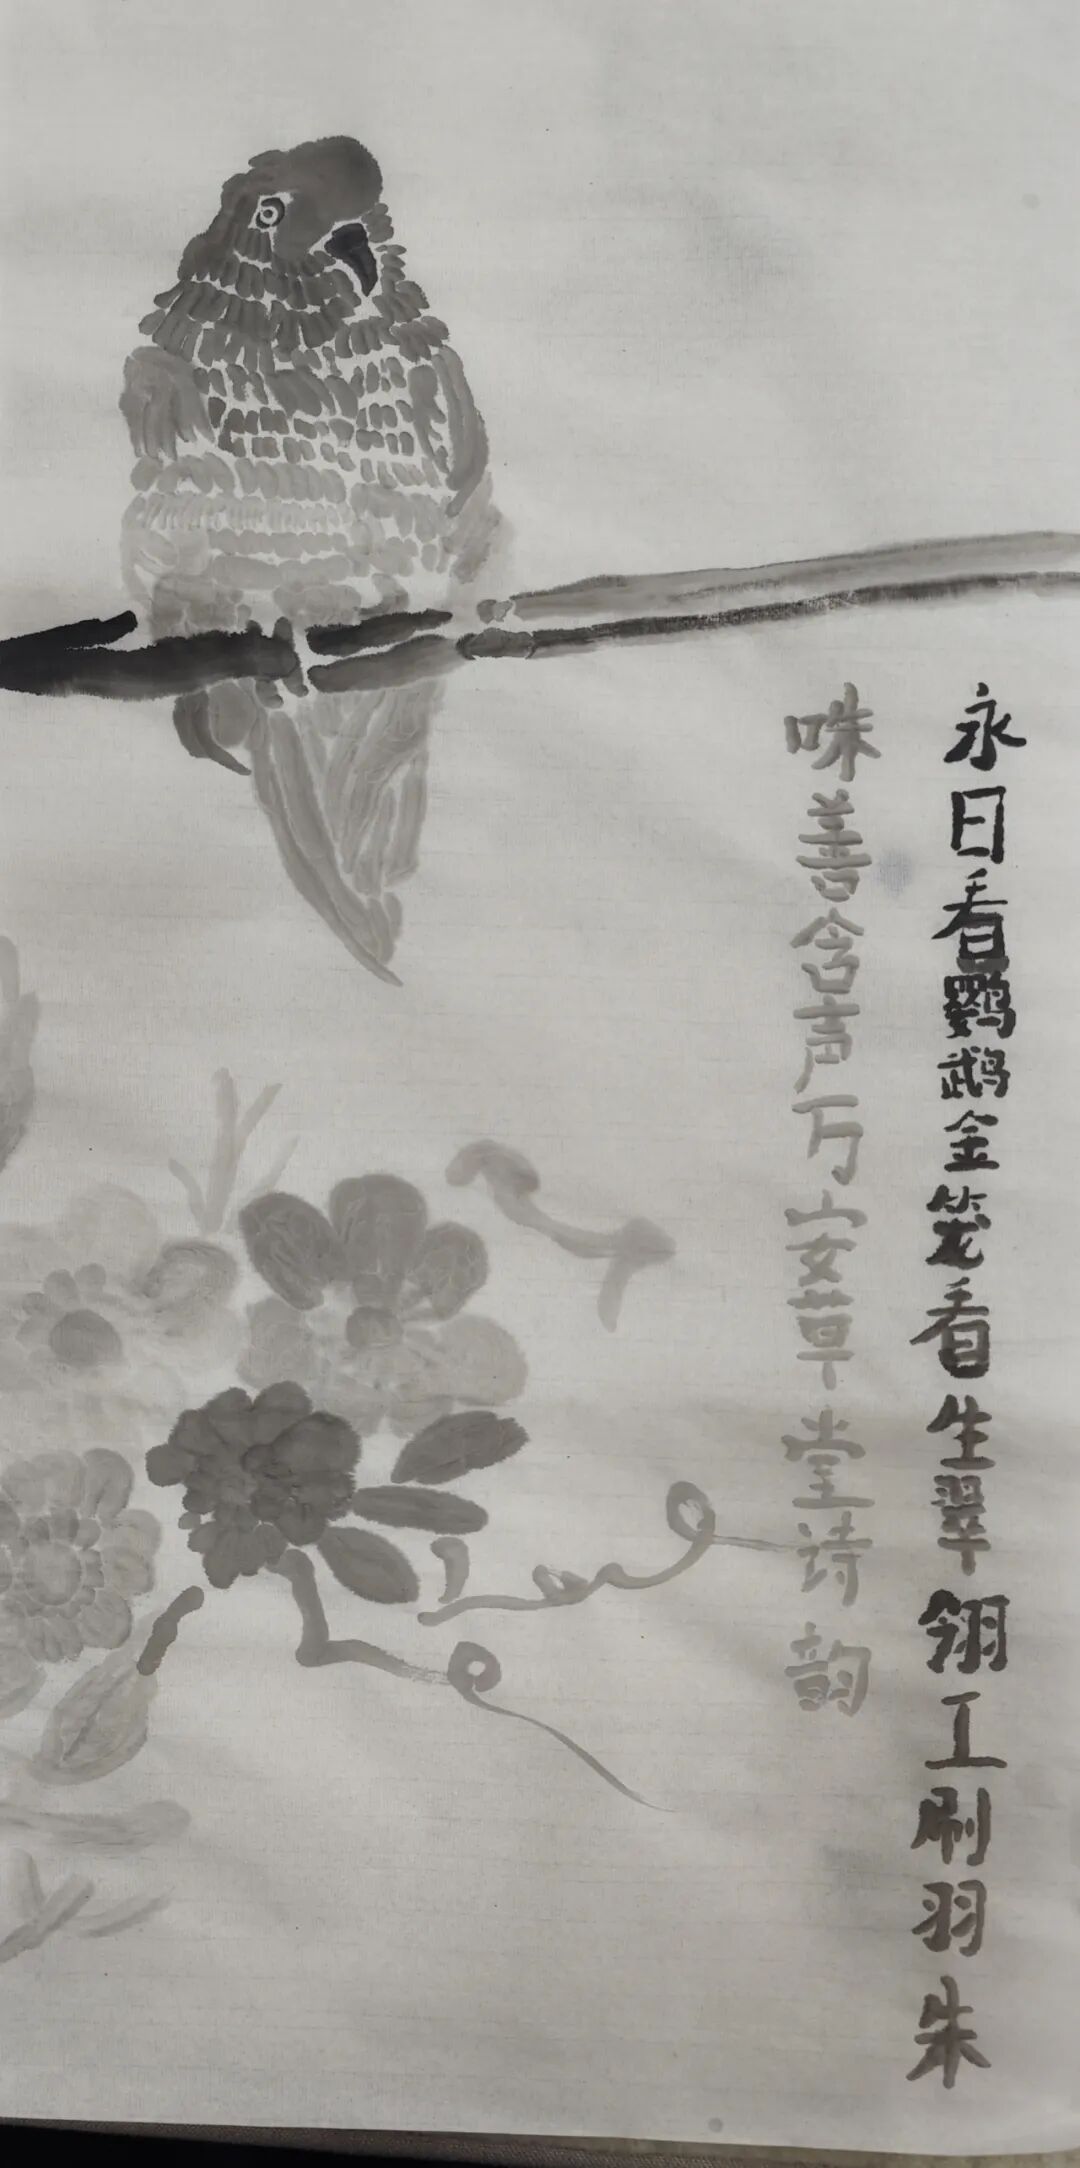 永日看鹦鹉金笼看生翠翎工刷羽朱
咮善含声万安草堂诗韵